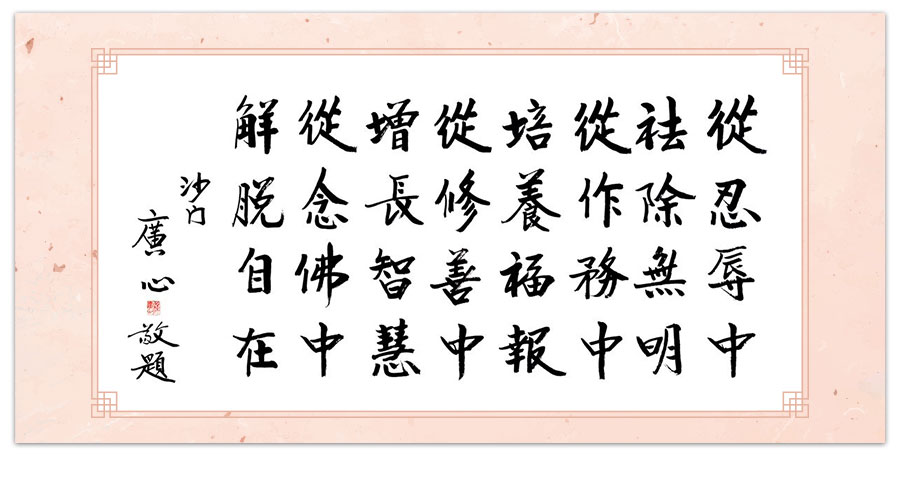 從忍辱中
祛除無明
從作務中
培養福報
從修善中
增長智慧
從念佛中
解脫自在
沙门
廣心
敬題